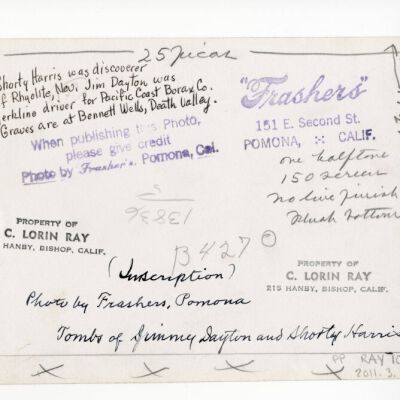 25 picas
Shorty Harris was discoverer
of Rhyolite, Nev. Jim Dayton was
driver for Pacific Coast Borax Co.
Graves are at Bennett Wells, Death Valley.
When publishing this Photo,
please give credit
Photo by Frasher's, Pomona, Cal.
"Frashers"
151 E. Second St.
POMONA, CALIF.
one halftone
150 screen
no line finish
flush bottom
13836
B427
PROPERTY OF
C. LORIN RAY
HANBY, BISHOP, CALIF.
(Inscription)
PROPERTY OF
C. LORIN RAY
215 HANBY, BISHOP, CALIF.
Photo by Frashers, Pomona
Tombs of Jimmey Dayton and Shorty Harris
PP RAY TO
2011.3.